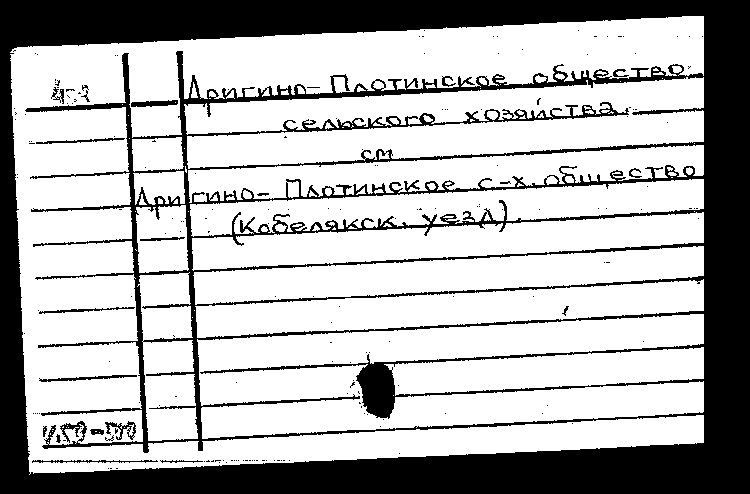 Аригино-Плотинское общество
сельского хозяйства.
см
Аригино-Плотинское с-х. общество
(Кобелякск. уезд).